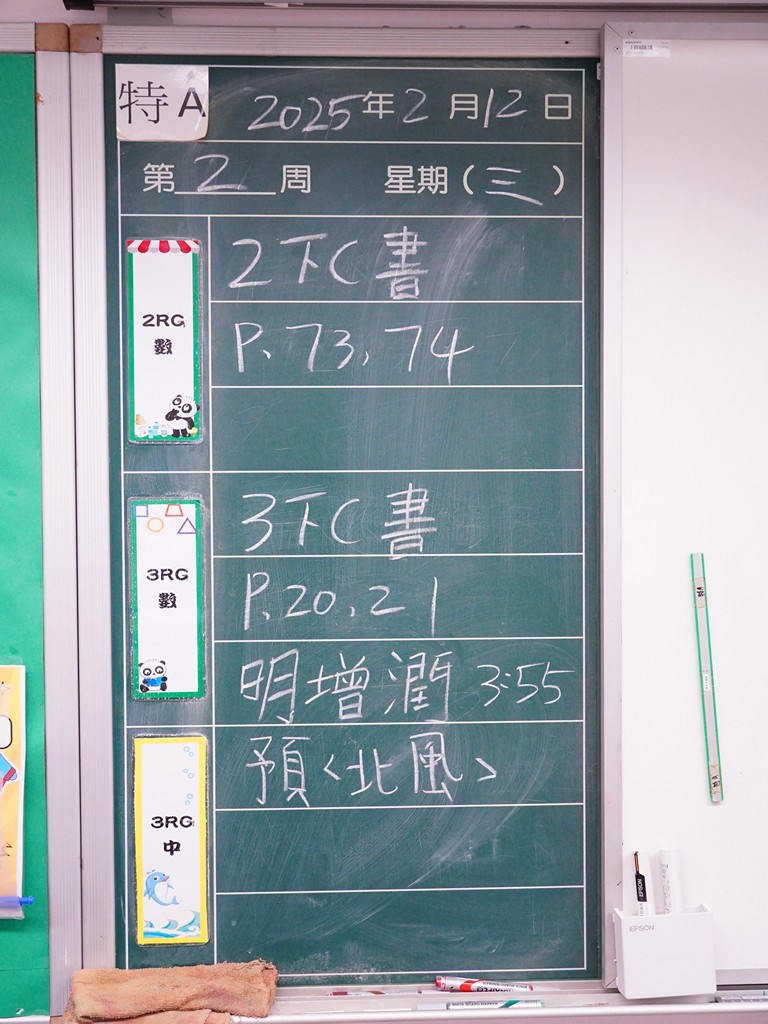 特 A
2025年2月12日
第2周 星期(三)
2RG
數
2下C書
P. 73, 74
3RG
數
3下C書
P. 20, 21
明增潤 3:55
3RG
中
預<北風>
EPSON
EPSON